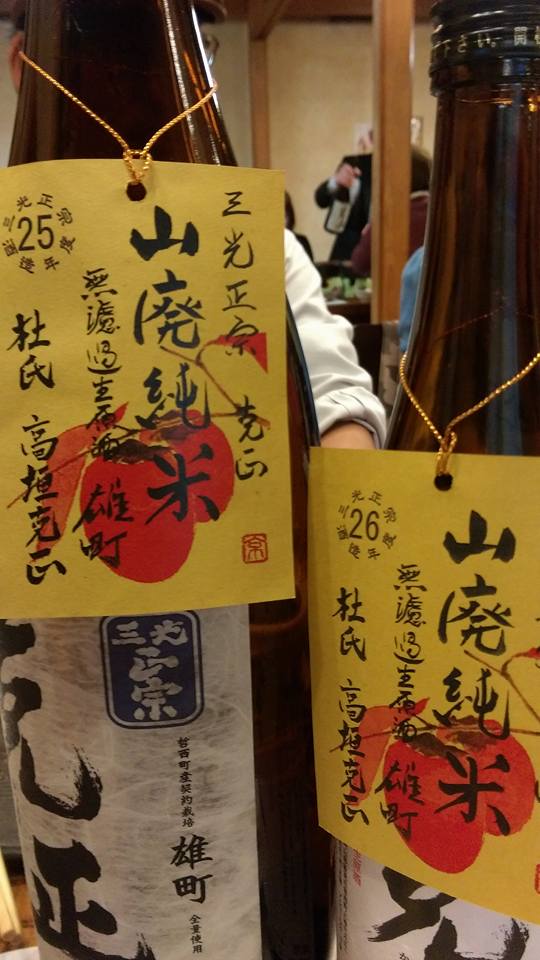 三光正宗 克正
山廃純米
無濾過生原酒 雄町
杜氏 高垣克正
三光正宗
25
醸年度
京
三光
正宗
克正
哲西町産契約栽培
雄町
全量使用
山廃純米
無濾過生原酒 雄町
杜氏 高垣克正
三光正宗
26
醸年度
克
さい。開